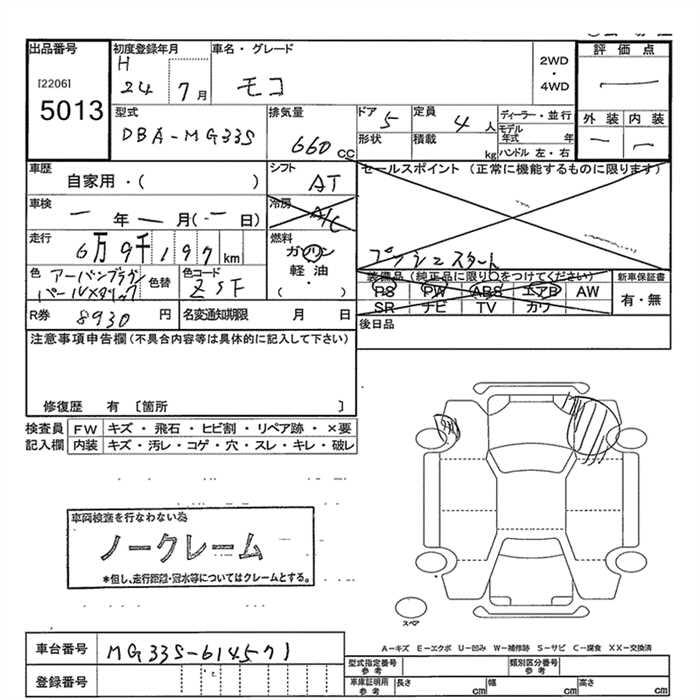 出品番号
[2206]
5013
初度登録年月
H
24 7月
車名・グレード
モコ
2WD
・
4WD
評価点
一
外装 内装
一 一
型式
DBA-MG33S
排気量
660 CC
ドア 5
形状
定員 4人
積載 kg
ディーラー・並行
モデル年式 年
ハンドル 左・右
車歴
自家用・( )
シフト
AT
セールスポイント (正常に機能するものに限ります)
プッシュスタート
車検
一年一月(・一日)
冷房
A/C
走行
6万9千197km
燃料
ガソリン
軽油
( ・ )
色 アーバンブラウン
パールメタリック
色替
色コード
ZSF
装備品(純正品に限り○をつけてください)
PS PW ABS エアB AW
SR ナビ TV カワ
新車保証書
有・無
R券 8930円
名変通知期限 月 日
後日品
注意事項申告欄(不具合内容等は具体的に記入して下さい)
修復歴 有 〔箇所 〕
検査員
記入欄
FW キズ・飛石・ヒビ割・リペア跡・×要
内装 キズ・汚レ・コゲ・穴・スレ・キレ・破レ
車両検査を行なわない為
ノークレーム
*但し、走行距離・冠水等についてはクレームとする。
スペア
A-キズ E-エクボ U-凹み W-補修跡 S-サビ C-腐食 XX-交換済
車台番号 MG33S-614571
登録番号
型式指定番号
参考
類別区分番号
参考
車庫証明用
参考
長さ cm 幅 cm 高さ cm